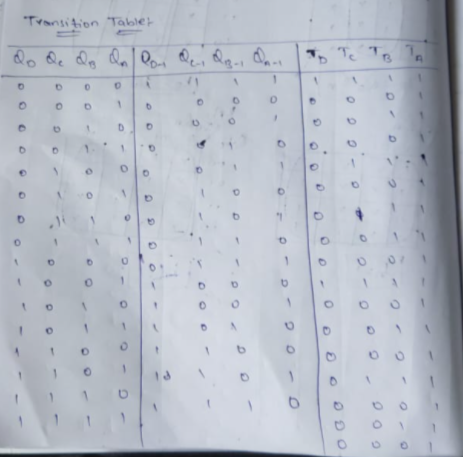 Transition Table:
QD QC QB QA QD-1 QC-1 QB-1 QA-1 TD TC TB TA
0 0 0 0 1 1 1 1 1 1 1 1
0 0 0 1 0 0 0 0 0 0 0 1
0 0 1 0 0 0 0 1 0 0 1 1
0 0 1 1 0 1 0 0 0 0 1
0 1 0 0 0 0 1 1 0 1 1 1
0 1 0 1 0 1 0 0 0 0 0 1
0 1 1 0 0 1 0 1 0 1 1
0 1 1 1 0 1 1 0 0 0 1 1
1 0 0 0 0 1 1 1 0 0 0 1
1 0 0 1 1 0 0 0 1 1 1 1
1 0 1 0 1 0 0 1 0 0 0 1
1 0 1 1 1 0 1 0 0 0 1 1
1 1 0 0 1 0 0 0 0 0 1
1 1 0 1 1 1 0 1 0 1 1 1
1 1 1 0 1 1 1 0 0 0 0 1
1 1 1 1 0 0 1 1
0 0 0 1